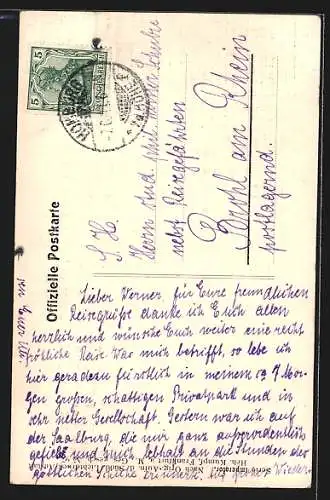 Offizielle Postkarte
5 5
HOMBURG
S. H.
Herrn stud. phil. Werner
nebst Reisegefährten
Brohl am Rhein
postlagernd.
Lieber Werner, für Eure freundlichen
Reisegrüße danke ich Euch allen
herzlich und wünsche Euch weiter eine recht
fröhliche Reise. Was mich betrifft, so lebe ich
hier geradezu fürstlich in meinem 59 Mor-
gen großen, schattigen Privatpark und in
sehr netter Gesellschaft. Gestern war ich auf
der Saalburg, die mir ganz außerordentlich
gefiel und mich lebhaft an die Stunden der
erinnerte. Auf frohes Wieder-